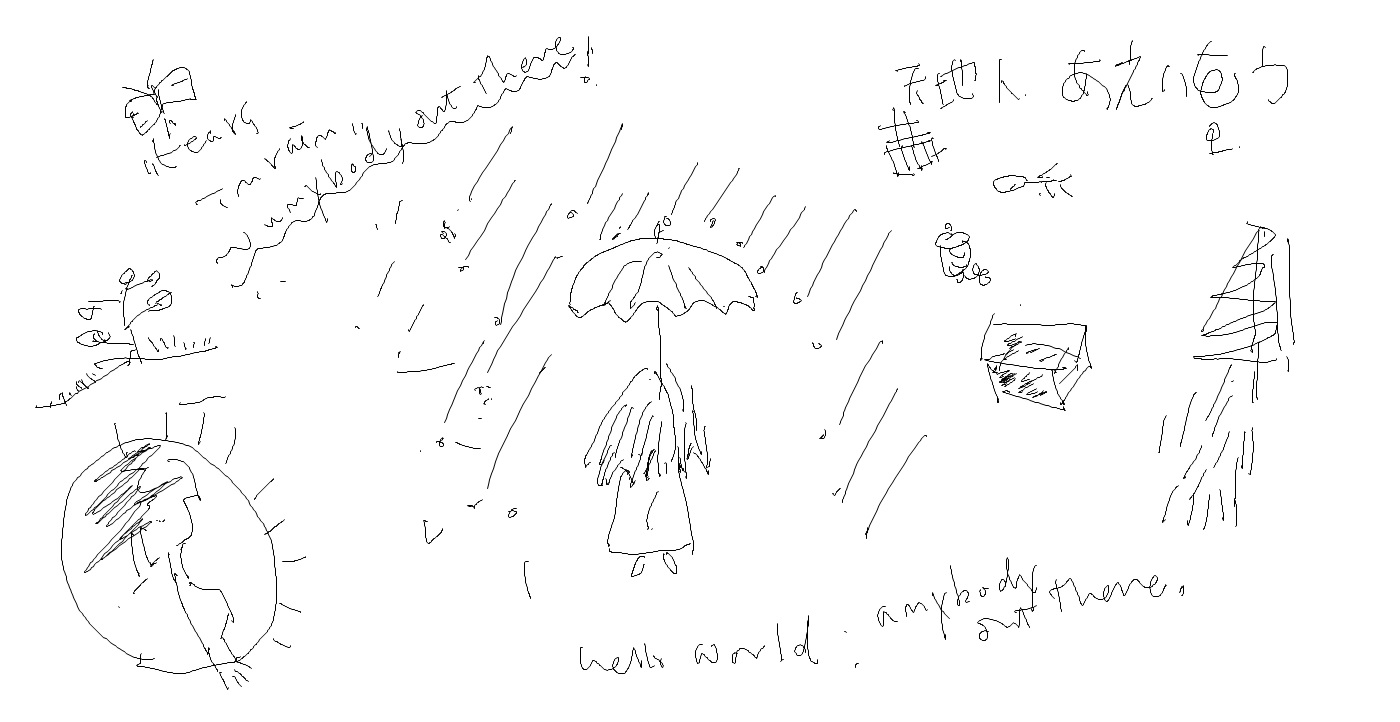 "tears
in rain"
anybody out there!
天地人 あえいおう
hello world : anybody
out there.